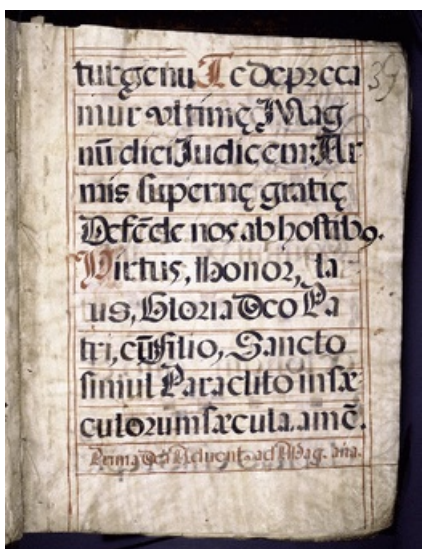 tur genu Te depreca 39
mur vltimę Mag
nū diei Judicem: Ar
mis supernę gratię
Defēde nos ab hostibꝰ.
Virtus, Honor, la
us, Gloria Deo Pa
tri, cū Filio, Sancto
simul Paraclito in sæ
culorum sæcula. amē.
Prima Advent. ad Mag. ana.